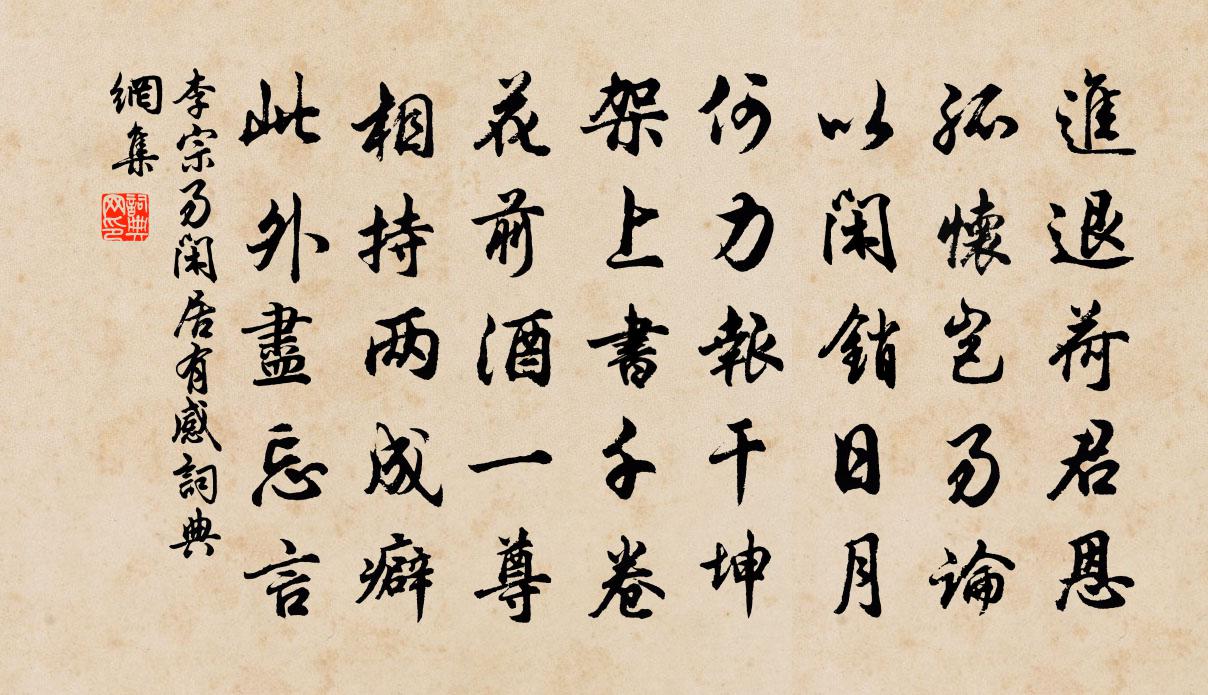 進退荷君恩
孤懷豈易論
以閑銷日月
何力報干坤
架上書千卷
花前酒一尊
相持两成癖
此外盡忘言
李宗易閑居有感詞典
網集
詞典
网印